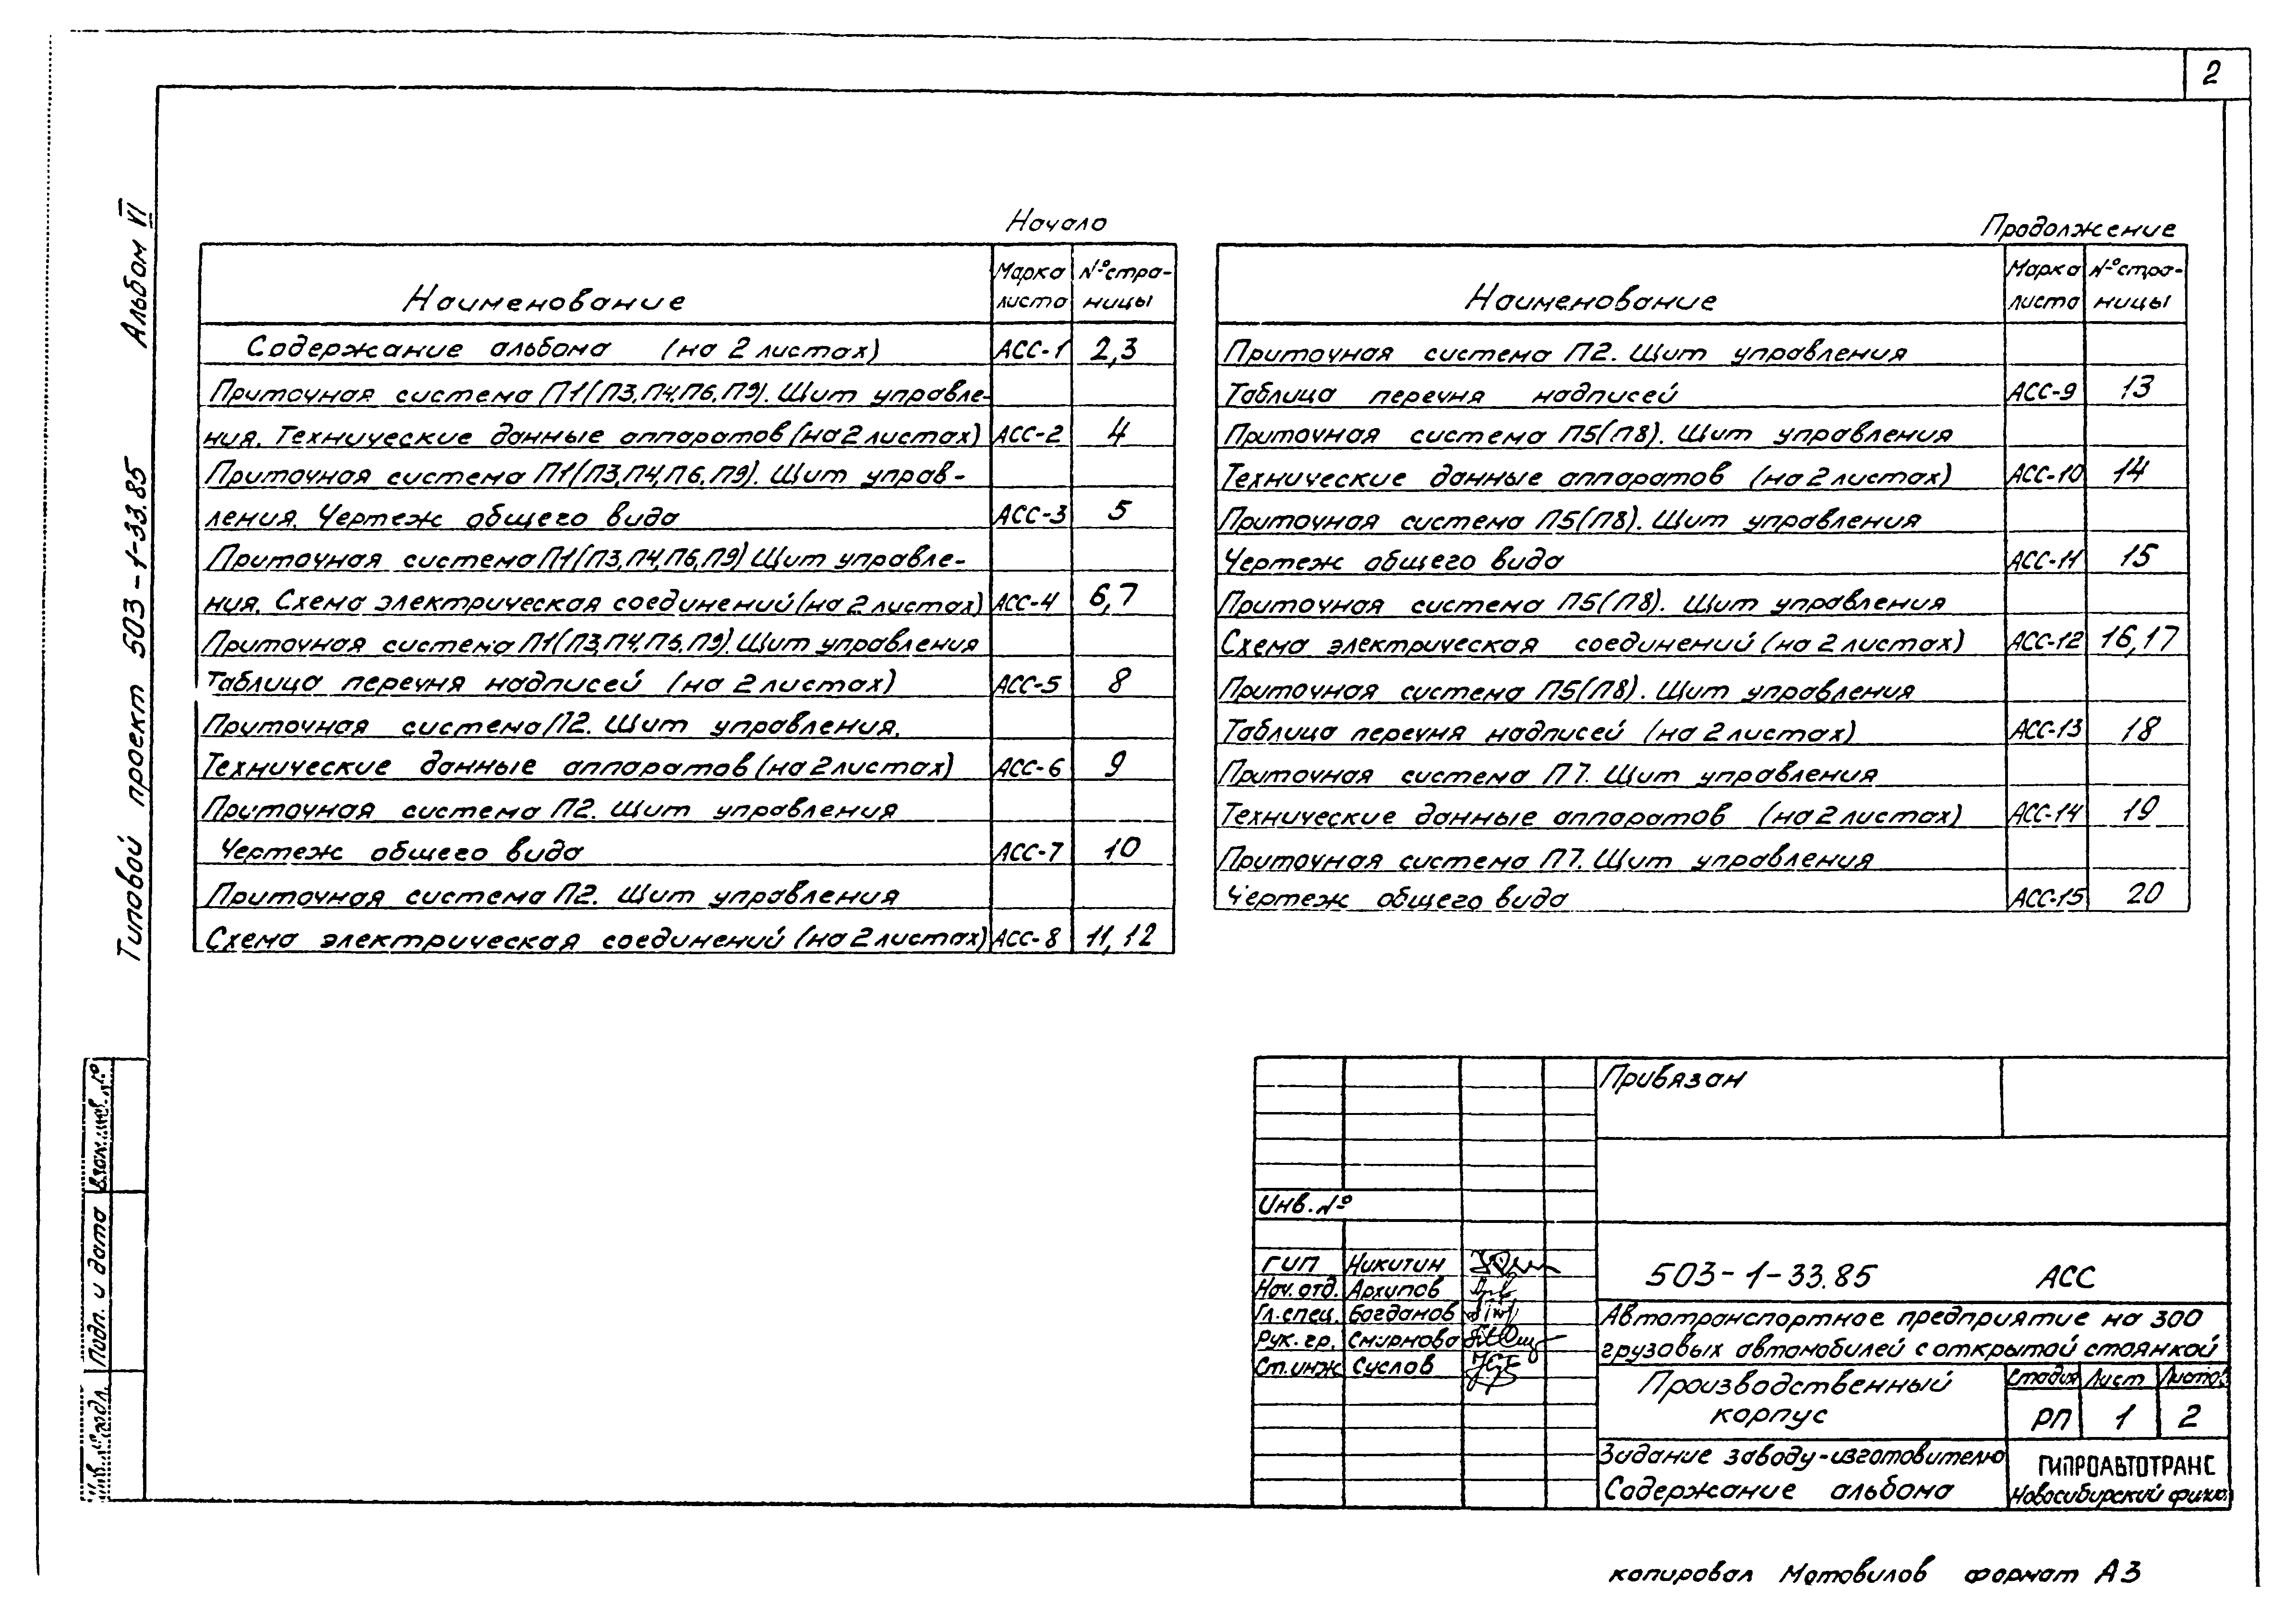 2
Альбом VI
Типовой проект 503-1-33.85
Начало
Наименование
Марка листа
№ стра-
ницы
Содержание альбома (на 2 листах) АСС-1 2,3
Приточная система П1(П3,П4,П6,П9). Щит управле-
ния. Технические данные аппаратов (на 2 листах) АСС-2 4
Приточная система П1(П3,П4,П6,П9). Щит управ-
ления. Чертеж общего вида АСС-3 5
Приточная система П1(П3,П4,П6,П9) Щит управле-
ния. Схема электрическая соединений (на 2 листах) АСС-4 6,7
Приточная система П1(П3,П4,П6,П9). Щит управления
Таблица перечня надписей (на 2 листах) АСС-5 8
Приточная система П2. Щит управления.
Технические данные аппаратов (на 2 листах) АСС-6 9
Приточная система П2. Щит управления
Чертеж общего вида АСС-7 10
Приточная система П2. Щит управления
Схема электрическая соединений (на 2 листах) АСС-8 11,12
Продолжение
Наименование
Марка листа
№ стра-
ницы
Приточная система П2. Щит управления
Таблица перечня надписей АСС-9 13
Приточная система П5(П8). Щит управления
Технические данные аппаратов (на 2 листах) АСС-10 14
Приточная система П5(П8). Щит управления
Чертеж общего вида АСС-11 15
Приточная система П5(П8). Щит управления
Схема электрическая соединений (на 2 листах) АСС-12 16,17
Приточная система П5(П8). Щит управления
Таблица перечня надписей (на 2 листах) АСС-13 18
Приточная система П7. Щит управления
Технические данные аппаратов (на 2 листах) АСС-14 19
Приточная система П7. Щит управления
Чертеж общего вида АСС-15 20
Взам. инв. №
Подп. и дата
Инв. № подл.
Привязан
Инв. №
ГИП Никитин
Нач. отд. Архипов
Гл. спец. Богданов
Рук. гр. Смирнова
Ст. инж Суслов
503-1-33.85 АСС
Автотранспортное предприятие на 300
грузовых автомобилей с открытой стоянкой
Производственный
корпус
Стадия Лист Листов
РП 1 2
Задание заводу-изготовителю
Содержание альбома
ГИПРОАВТОТРАНС
Новосибирский филиал
копировал Мотовилов формат А3